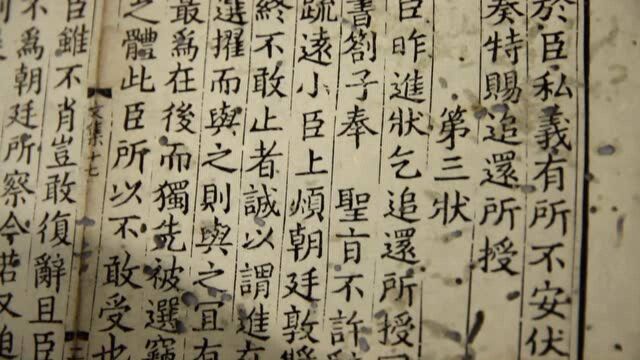 於臣私義有所不安伏
奏特賜追還所授
第三狀
臣昨進狀乞追還所授
書劄子奉 聖旨不許
疏遠小臣上煩朝廷敦
終不敢止者誠以謂進在
選擢而與之則與之宜有
最爲在後而獨先被選竊
之體此臣所以不敢受也
文集十七
臣雖不肖豈敢復辭且臣
不爲朝廷所察今若又迫